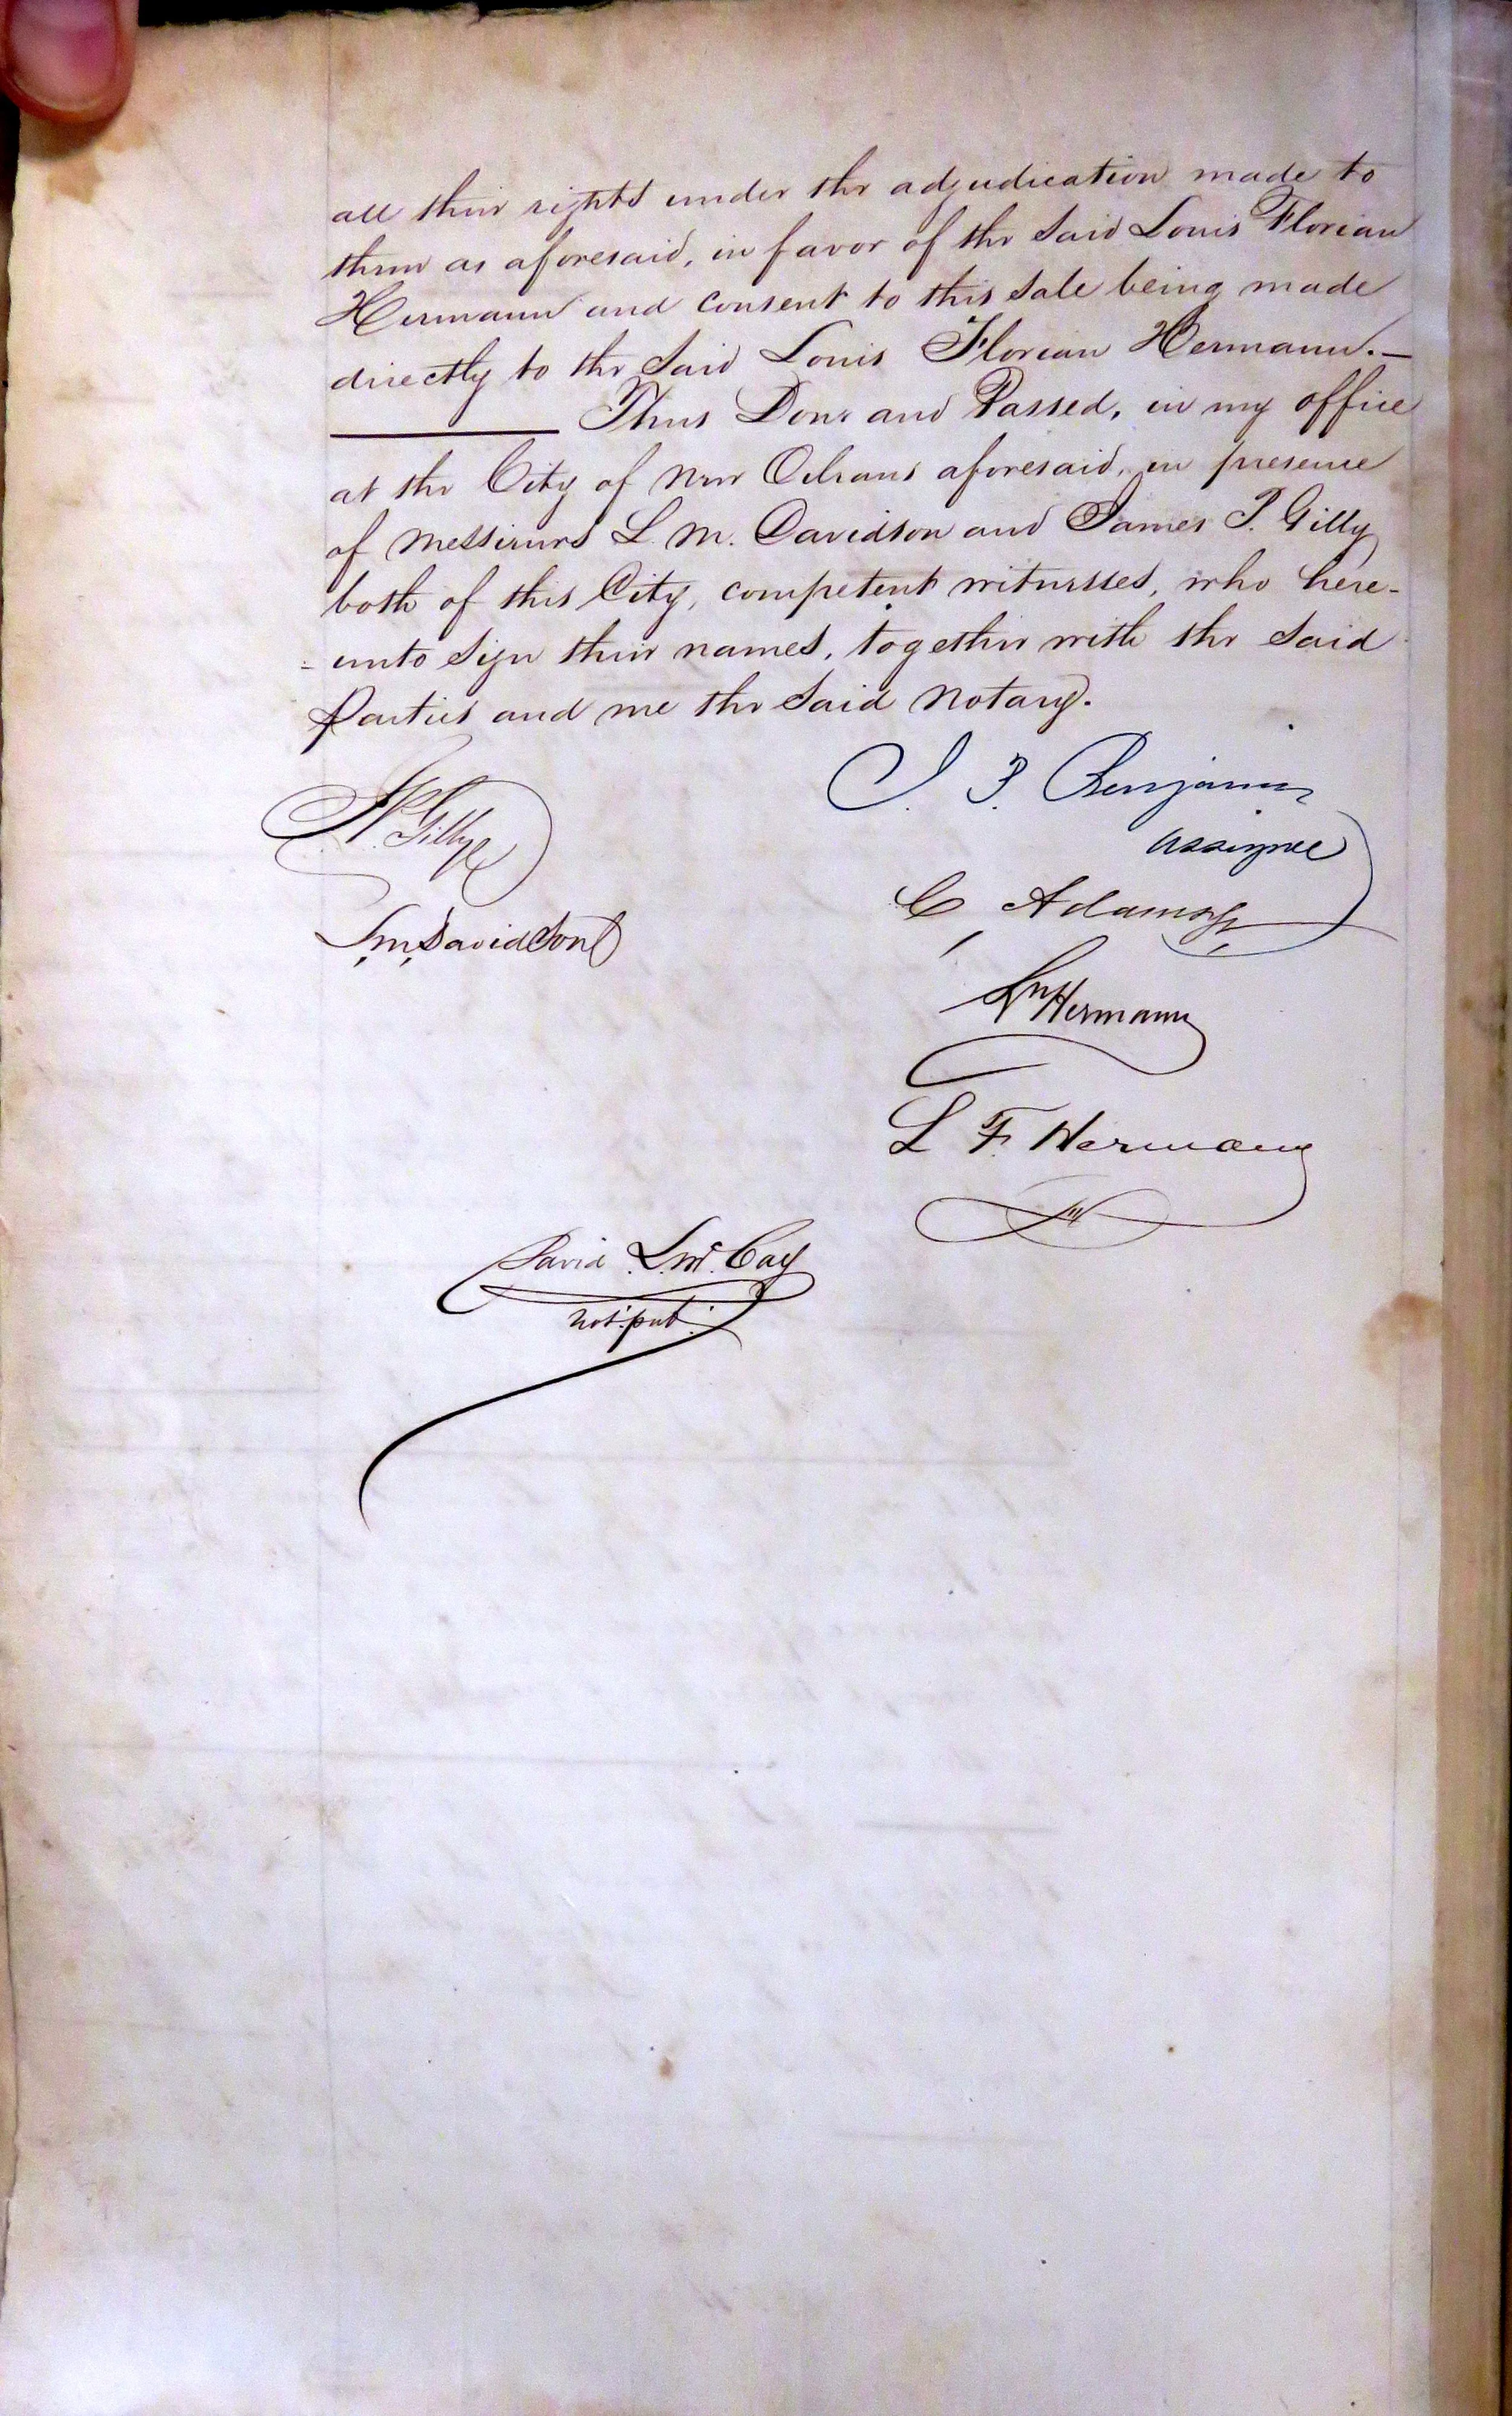 all their rights under the adjudication made to
them as aforesaid, in favor of the said Louis Florian
Hermann and consent to this sale being made
directly to the said Louis Florian Hermann.—
Thus Done and Passed, in my office
at the City of New Orleans aforesaid, in presence
of Messieurs L. M. Davidson and James P. Gilly
both of this City, competent witnesses, who here-
-unto sign their names, together with the said
Parties and me the said Notary.
J. P. Benjamin
J P. Gilly
assignee
C Adams Jr
L, m, Davidson
Ln Hermann
L F. Hermann
David L. Mc. Cay
Not: pub: